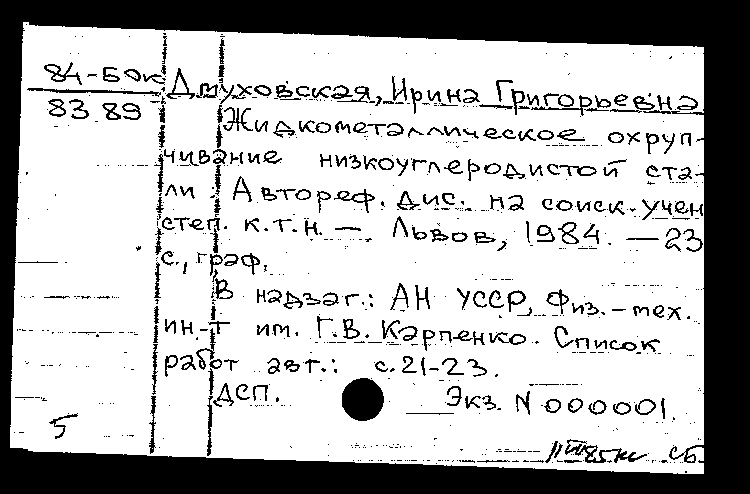 84-БОК
83 89
Дмуховская, Ирина Григорьевна
Жидкометаллическое охруп-
чивание низкоуглеродистой ста-
ли. Автореф. дис. на соиск. учен
степ. к.т.н. —. Львов, 1984. — 23
с., граф.
В надзаг.: АН УССР, Физ.-мех.
ин-т им. Г.В. Карпенко. Список
работ авт.: с.21-23.
ДСП. Экз. N 000001.
5
СБ